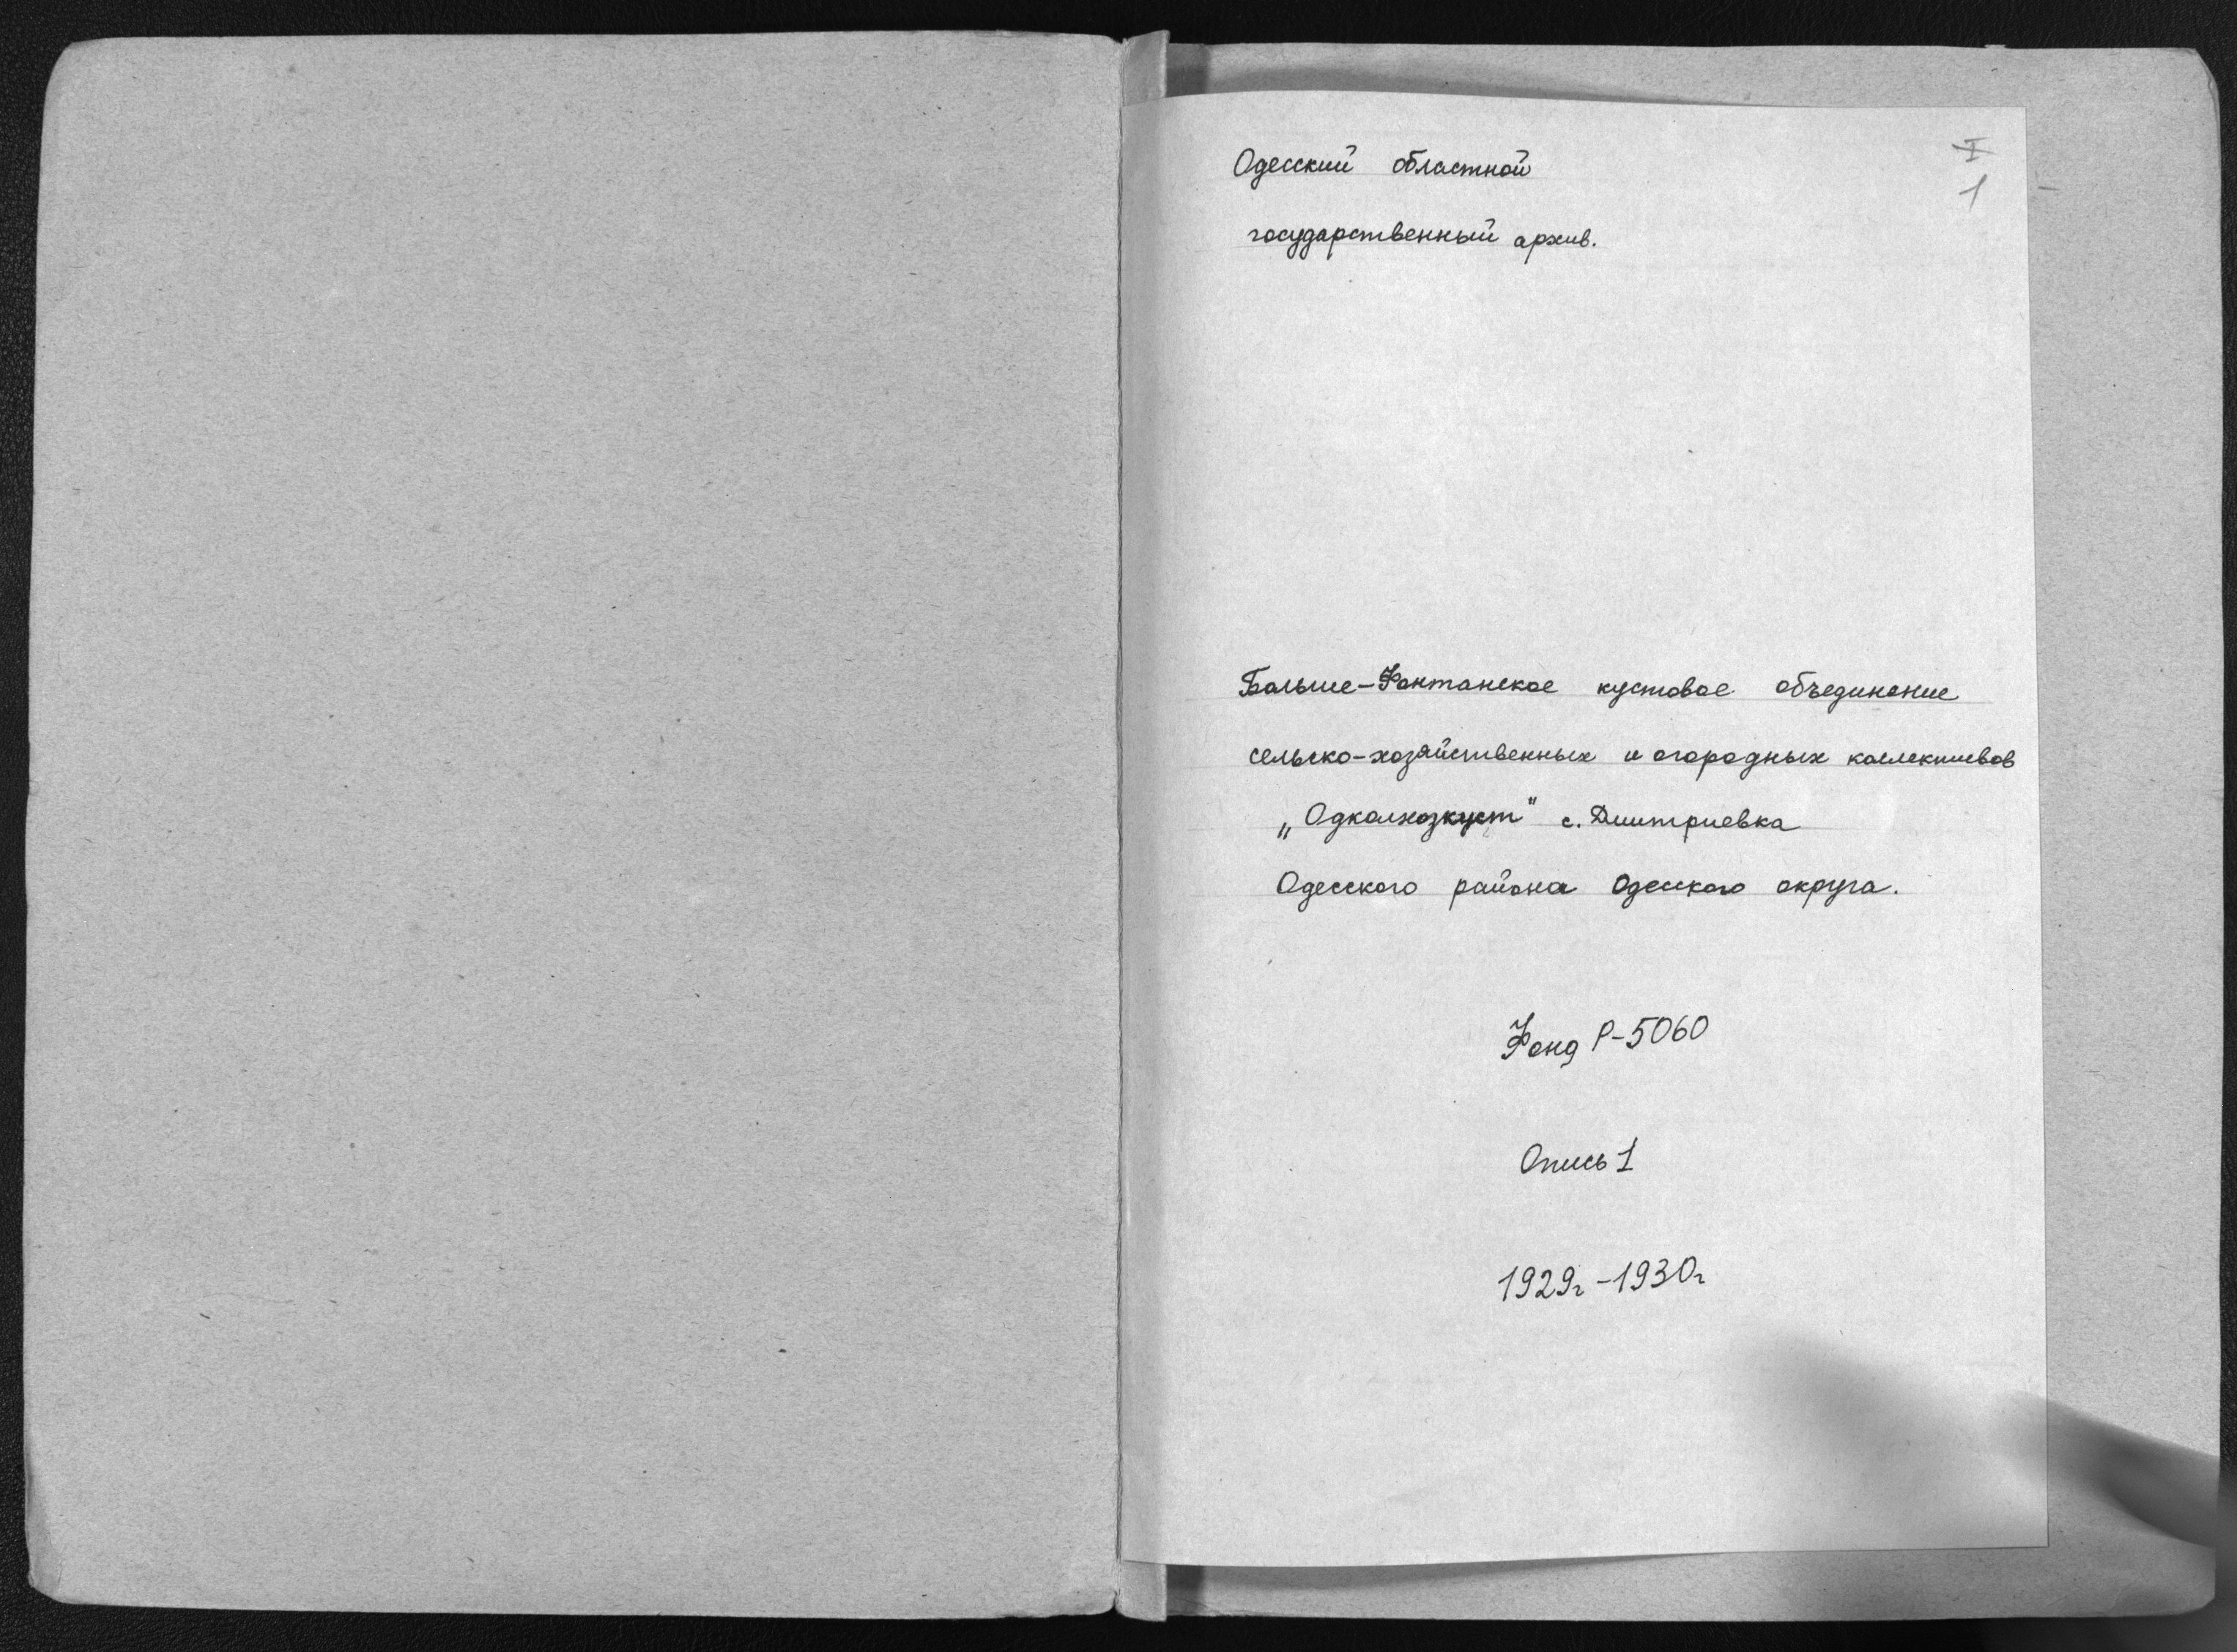 I
1
Одесский областной
государственный архив.
Больше-Фонтанское кустовое объединение
сельско-хозяйственных и огородных коллективов
„Одколхозкуст" с. Дмитриевка
Одесского района Одесского округа.
Фонд Р-5060
Опись 1
1929г -1930г